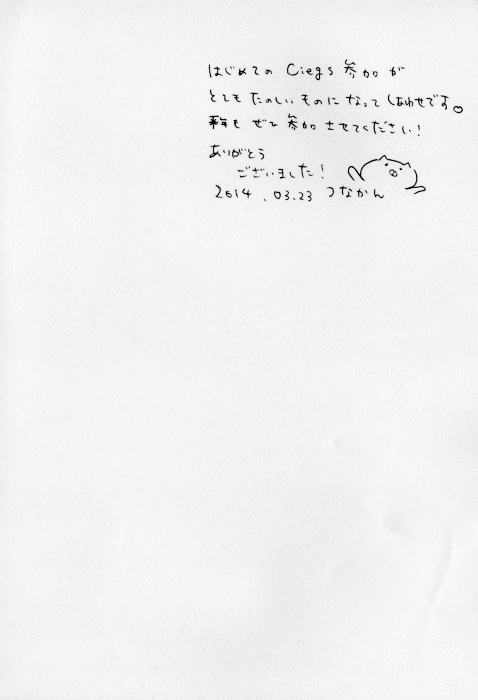 はじめての Ciegs 参加が
とても たのしい ものに なって しあわせです
来年も ぜひ 参加 させてください!
ありがとう
ございました!
2014.03.23 つなかん